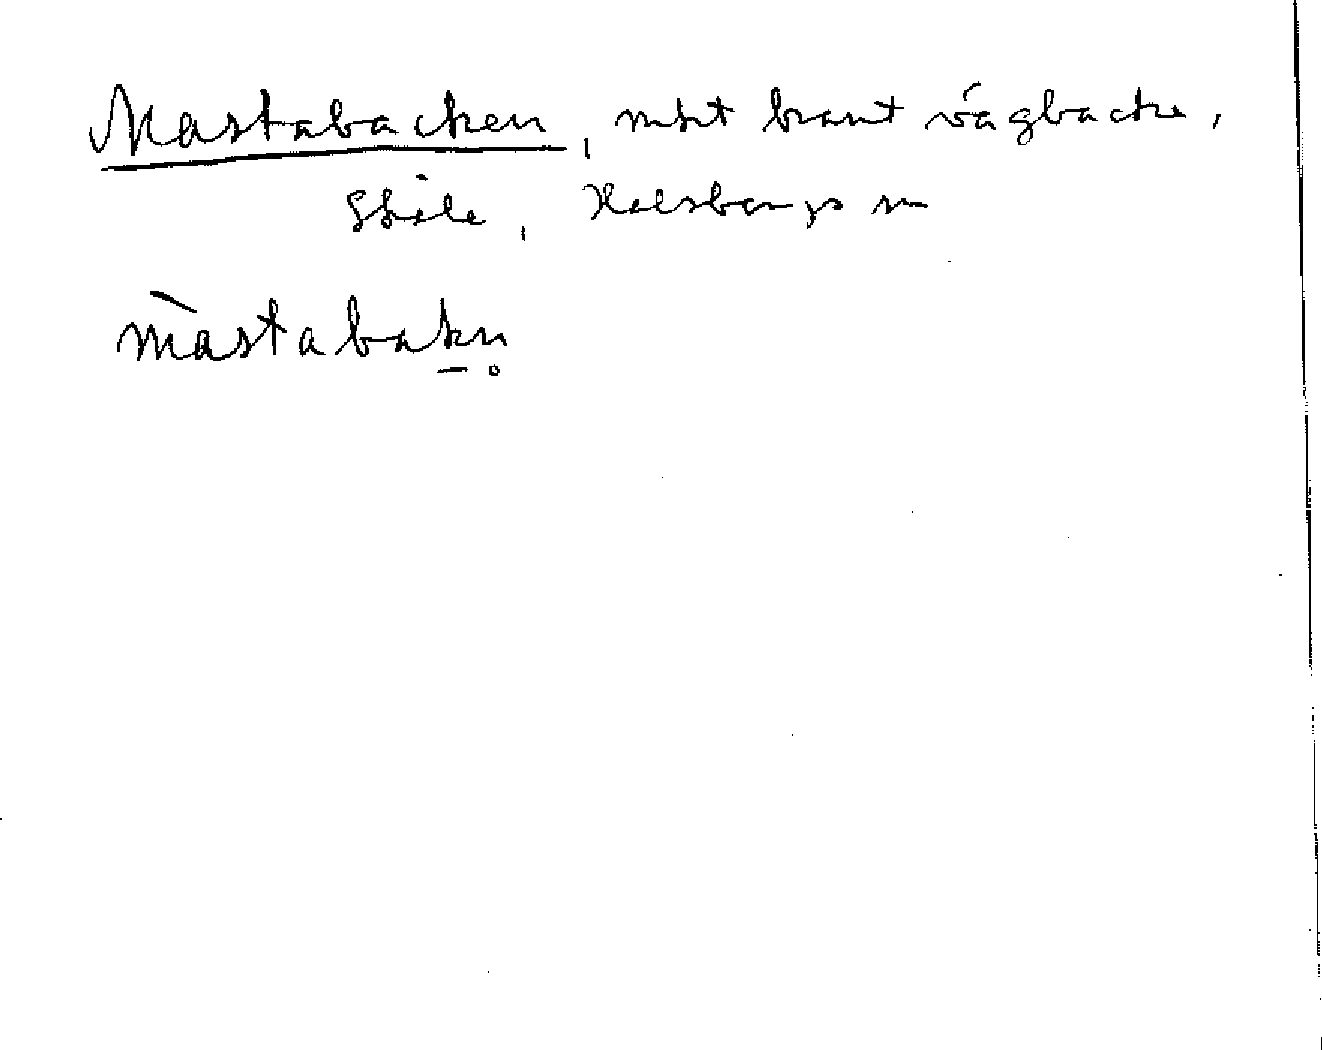 Mastabacken, mkt brant vägbacke,
Skåle, Kolsbergs sn
màstabakn̥